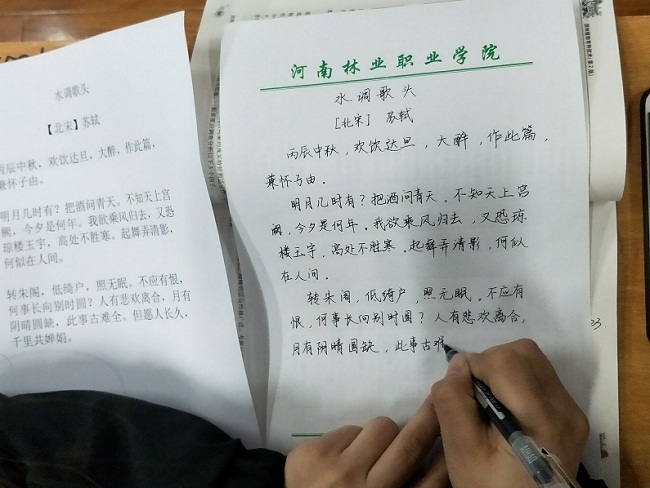 水调歌头
【北宋】苏轼
丙辰中秋，欢饮达旦，大醉，作此篇，
兼怀子由。
明月几时有？把酒问青天。不知天上宫
阙，今夕是何年。我欲乘风归去，又恐
琼楼玉宇，高处不胜寒。起舞弄清影，
何似在人间。
转朱阁，低绮户，照无眠。不应有恨，
何事长向别时圆？人有悲欢离合，月有
阴晴圆缺，此事古难全。但愿人长久，
千里共婵娟。
河南林业职业学院
水调歌头
[北宋] 苏轼
丙辰中秋，欢饮达旦，大醉，作此篇，
兼怀子由．
明月几时有？把酒问青天．不知天上宫
阙，今夕是何年．我欲乘风归去，又恐琼
楼玉宇，高处不胜寒．起舞弄清影，何似
在人间．
转朱阁，低绮户，照无眠，不应有
恨，何事长向别时圆？人有悲欢离合，
月有阴晴圆缺，此事古难